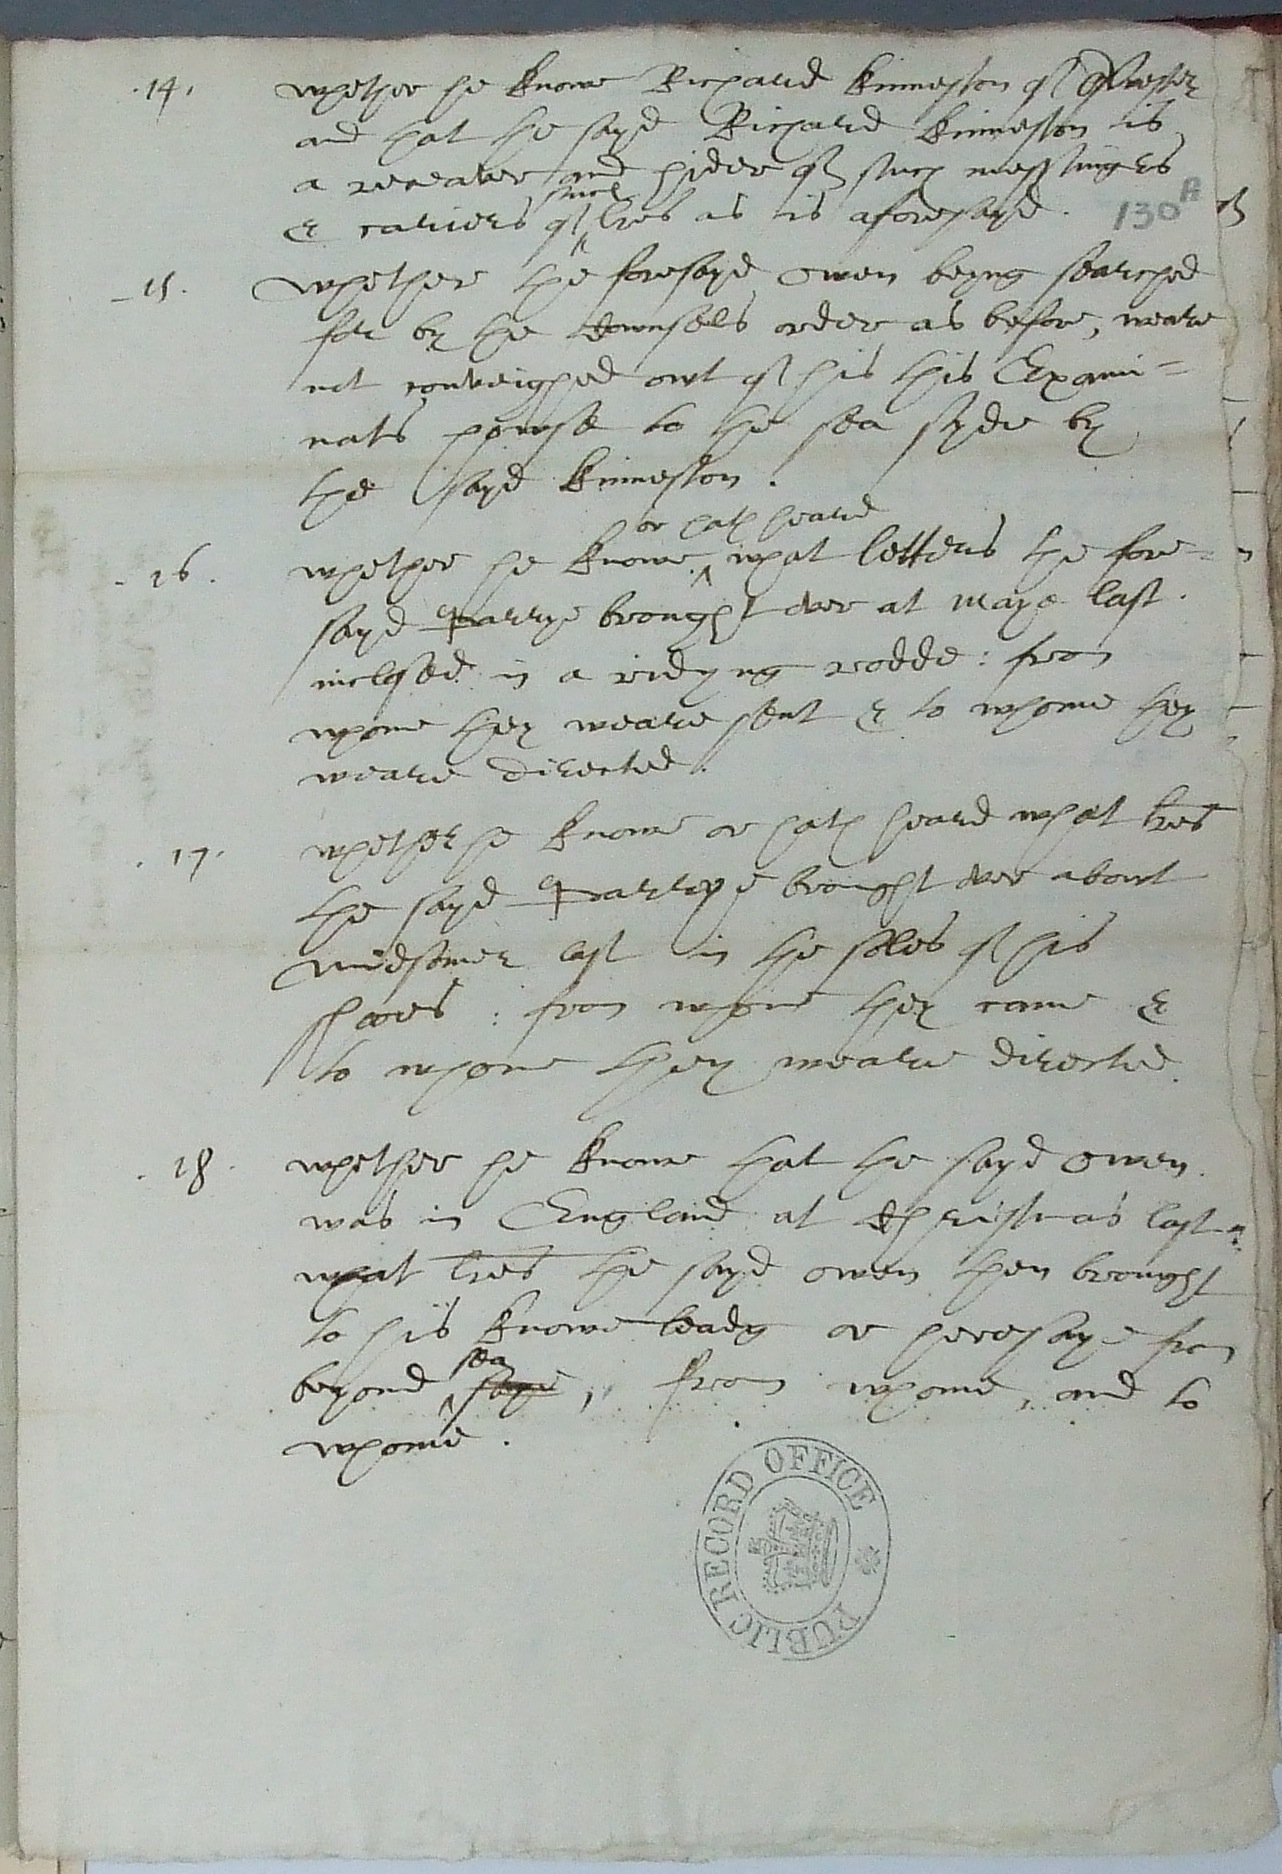 .14. whether he knowe Richard kinneston of
and that the sayd Richard kinneston is
a receaver and hider of such messingers
such
& cariers of ^ lres as is aforesayd. 130A
15. Whether the foresayd Owen beyng searched
for by the Cownsels order as before, weare
not conveighed owt of this his Exami=
nats howse to the sea syde by
the sayd kinneston.
or hath heard
16. whether he knowe ^ what letters the fore=
sayd Parrye browght over at Maye last
inclosed in a ridyng rodde: from
whome they weare sent & to whome they
weare directed.
17. whether he knowe or hath heard what lres
the sayd Parrye browght over abowt
Midsomer last in the soles of his
shoes: from whome they came &
to whome they weare directed.
18. whether he knowe that the sayd Owen
was in England at Christmas last
what lres the sayd Owen then browght
to his knowleadg or heresaye from
sea
beyond ^ saye, from whome, and to
whome.
PUBLIC RECORD OFFICE